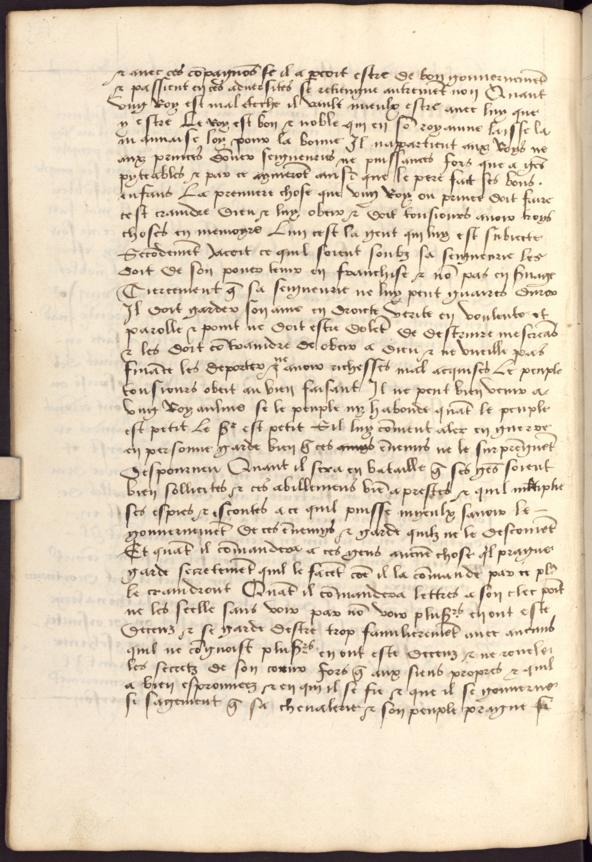 & avec ces cōpagnōs se il apcoit estre de bon gouvernemēt
& pascient en ces adversites se retiengne autremēt non Quant
ung Roy est mal teche il vault mieulx estre avec luy que
y estre Le roy est bon & noble qui en sō royaume laisse la
mauvaise loy pour la bonne Il napartient aux Roys ne
aux princes doner seigneuries ne puissances fors que a gēs
pyteables & par ce aymerōt ainsi que le pere fait ses bons
enfans La premiere chose que ung Roy ou prince doit faire
cest craindre dieu & luy obeir & doit tousiours avoir troys
choses en memoyre Lun cest la gent qui luy est subiecte
Secōdemēt Jacoit ce quil soient soubz sa seigneurie les
doit de son povoir tenir en franchise & nō pas en
Tiercement q̄ sa seigneurie ne luy peut guaires durer
Il doit garder son ame en droicte verite en voulente et
parolle & point ne doit estre dolēt de destruire mescreās
& les doit cōtraindre de obeir a dieu & ne vueille pas
fināce les deporter ne avoir richesses mal acquises Le peuple
tousiours obeit au bien faisant Il ne peut bien venir a
ung Roy aulmo se le peuple ny habonde quāt le peuple
est petit Le sr est petit Sil luy cōvient aler en guerre
en personne garde bien q̄ ces enemis ne le surprēgnēt
despourveu Quant il sera en bataille q̄ ses gēs soient
bien sollicites & ces abillemens biē aprestes & quil multiplie
ses espies & escoutes a ce quil puisse mieulx savoir le
gouvernemēt de ces enemys & garde quilz ne le descoivēt
Et quāt il cōmandera a ces gens aucune chose Il praigne
garde secretemēt quil le facēt cōe il la cōmāde par ce pl9
le craindront Quāt il cōmandera lettres a son clerc poīt
ne les seelle sans voir par nō voir pluss̄rs en ont este
deceuz & se garde destre trop familierement avec aucuns
quil ne cognoist pluss̄rs en ont este deceuz & ne revele
les secretz de son cueur fors q̄ aux siens propres & quil
a bien esprouvez & en qui il se fie & que il se gouverne
si sagement q̄ sa chevalerie & son peuple praigne